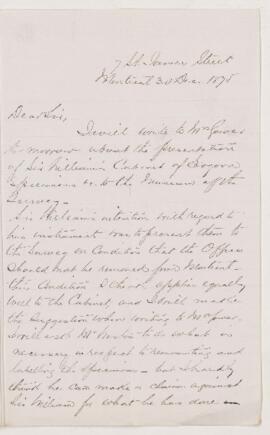 7 St. James Street
Montreal 30 Dec. 1875
Dear Sir,
I will write to Mr
tomorrow about the presentation
of Sir William's Cabinet of
Specimens &c. to the Museum of the
Survey.
Sir William's intention with regard to
his instruments was to present them to
the Survey on Condition that the Office
should not be removed from Montreal —
this Condition I think applies equally
well to the Cabinet, and I will make
the Suggestion when writing to Mr
I will ask Mr to do what is
necessary in respect to remounting and
labelling the Specimens — but I hardly
think he can make a claim against
Sir William for what he has done —